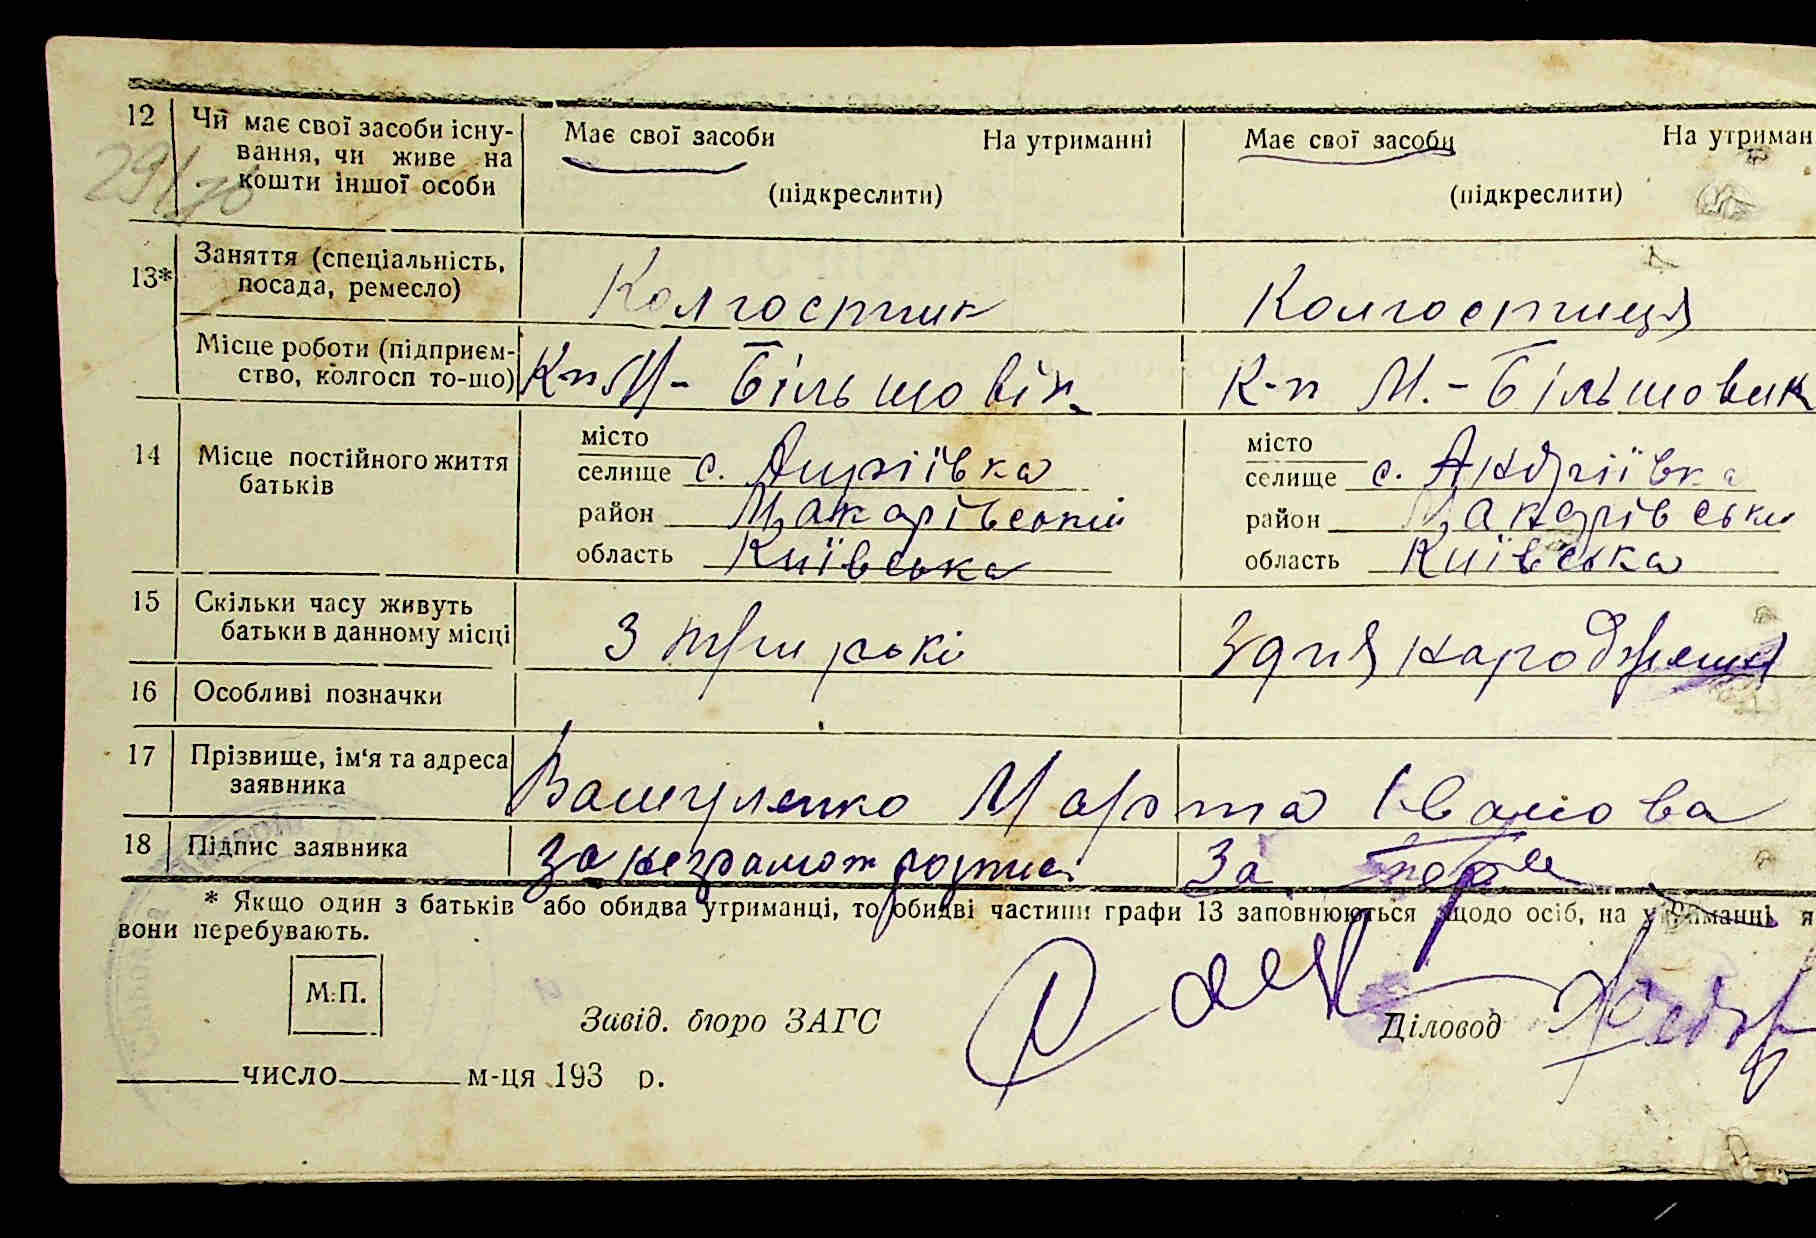 12 Чи має свої засоби існу-
вання, чи живе на
кошти іншої особи
Має свої засоби На утриманні
(підкреслити)
Має свої засоби На утриман
(підкреслити)
29/
13* Заняття (спеціальність,
посада, ремесло)
Колгоспник
Колгоспниця
Місце роботи (підприєм-
ство, колгосп то-що)
К-п М- Більшовік
К-п М.- Більшовик
14 Місце постійного життя
батьків
місто
селище с. Андріївка
район Макарівський
область Київська
місто
селище с. Андріївка
район Макарівськи
область Київська
15 Скільки часу живуть
батьки в данному місці
3 три рокі
З дня народження
16 Особливі позначки
17 Прізвище, ім'я та адреса
заявника
Вашуленко Марта Іванова
18 Підпис заявника
За неграмот роспис
За
* Якщо один з батьків або обидва утриманці, то обидві частини графи 13 заповнюються щодо осіб, на утриманні я
вони перебувають.
М.П.
Завід. бюро ЗАГС
Діловод
число м-ця 193 р.